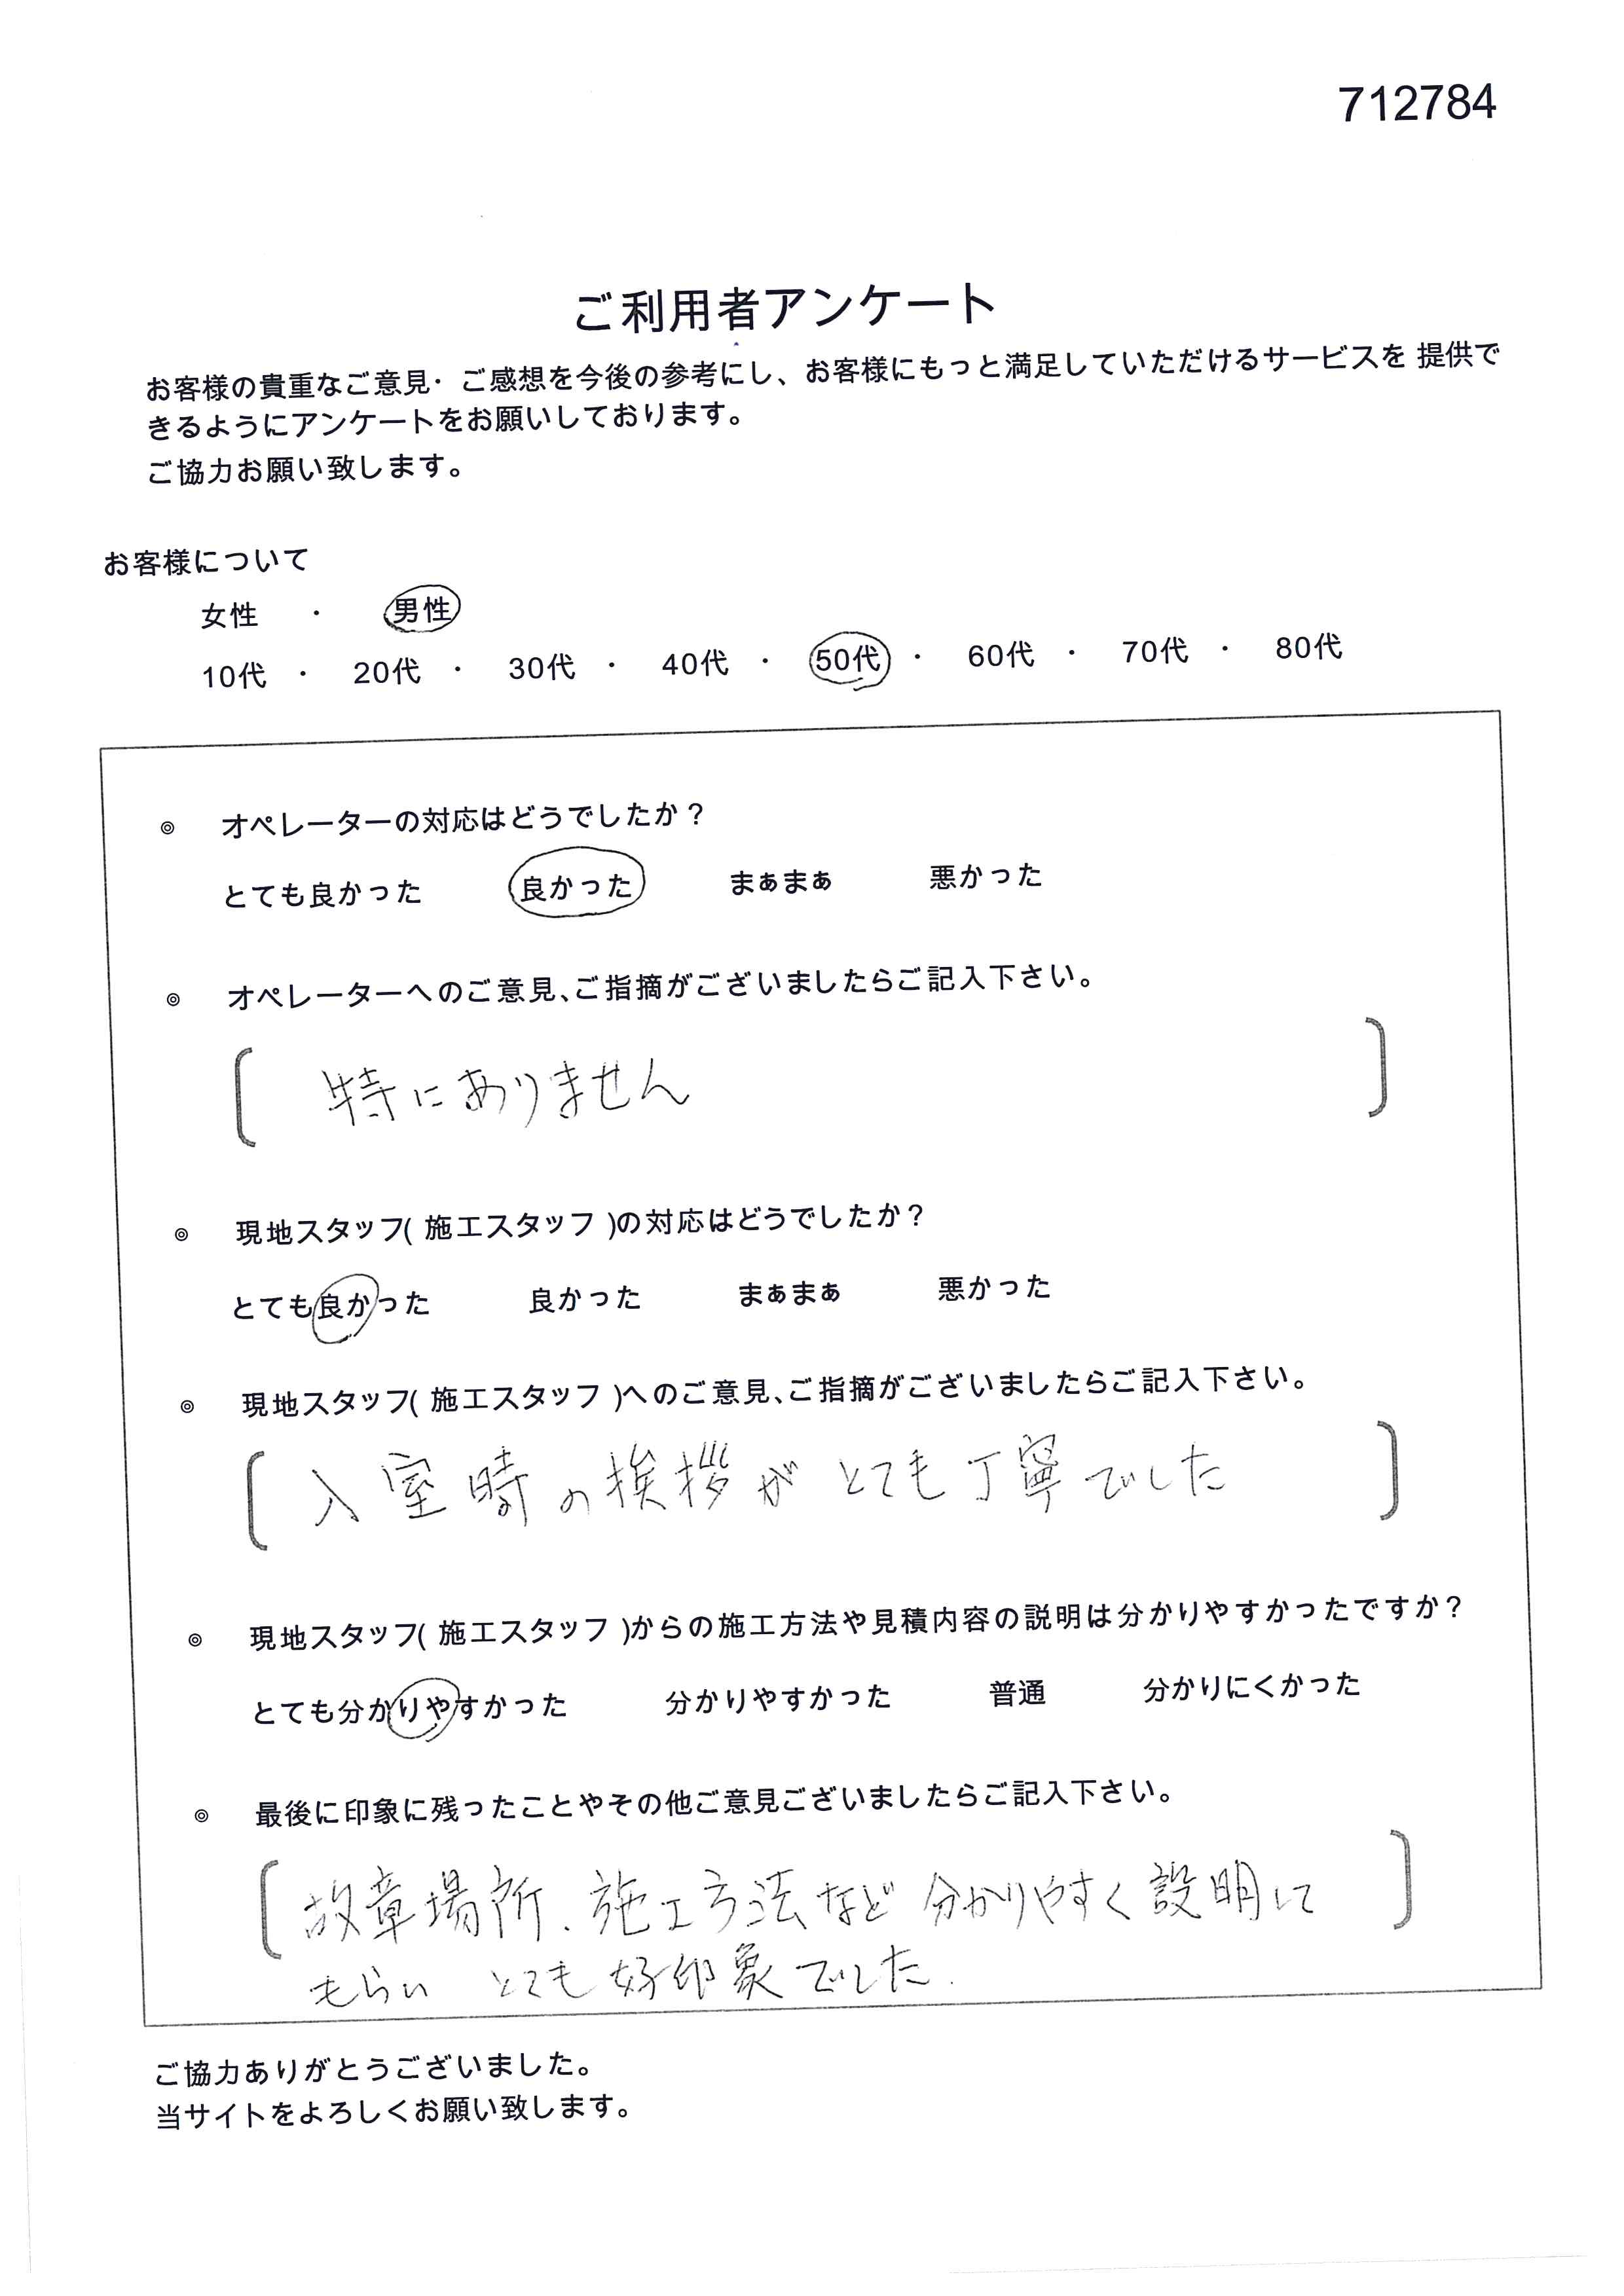 712784
ご利用者アンケート
お客様の貴重なご意見・ご感想を今後の参考にし、お客様にもっと満足していただけるサービスを 提供で
きるようにアンケートをお願いしております。
ご協力お願い致します。
お客様について
女性 ・ 男性
10代 ・ 20代 ・ 30代 ・ 40代 ・ 50代 ・ 60代 ・ 70代 ・ 80代
◎ オペレーターの対応はどうでしたか？
とても良かった 良かった まぁまぁ 悪かった
◎ オペレーターへのご意見、ご指摘がございましたらご記入下さい。
特にありません
◎ 現地スタッフ( 施工スタッフ )の対応はどうでしたか？
とても良かった 良かった まぁまぁ 悪かった
◎ 現地スタッフ( 施工スタッフ )へのご意見、ご指摘がございましたらご記入下さい。
入室時の挨拶がとても丁寧でした
◎ 現地スタッフ( 施工スタッフ )からの施工方法や見積内容の説明は分かりやすかったですか？
とても分かりやすかった 分かりやすかった 普通 分かりにくかった
◎ 最後に印象に残ったことやその他ご意見ございましたらご記入下さい。
故章場所、施工方法など分かりやすく説明して
もらい とても好印象でした.
ご協力ありがとうございました。
当サイトをよろしくお願い致します。